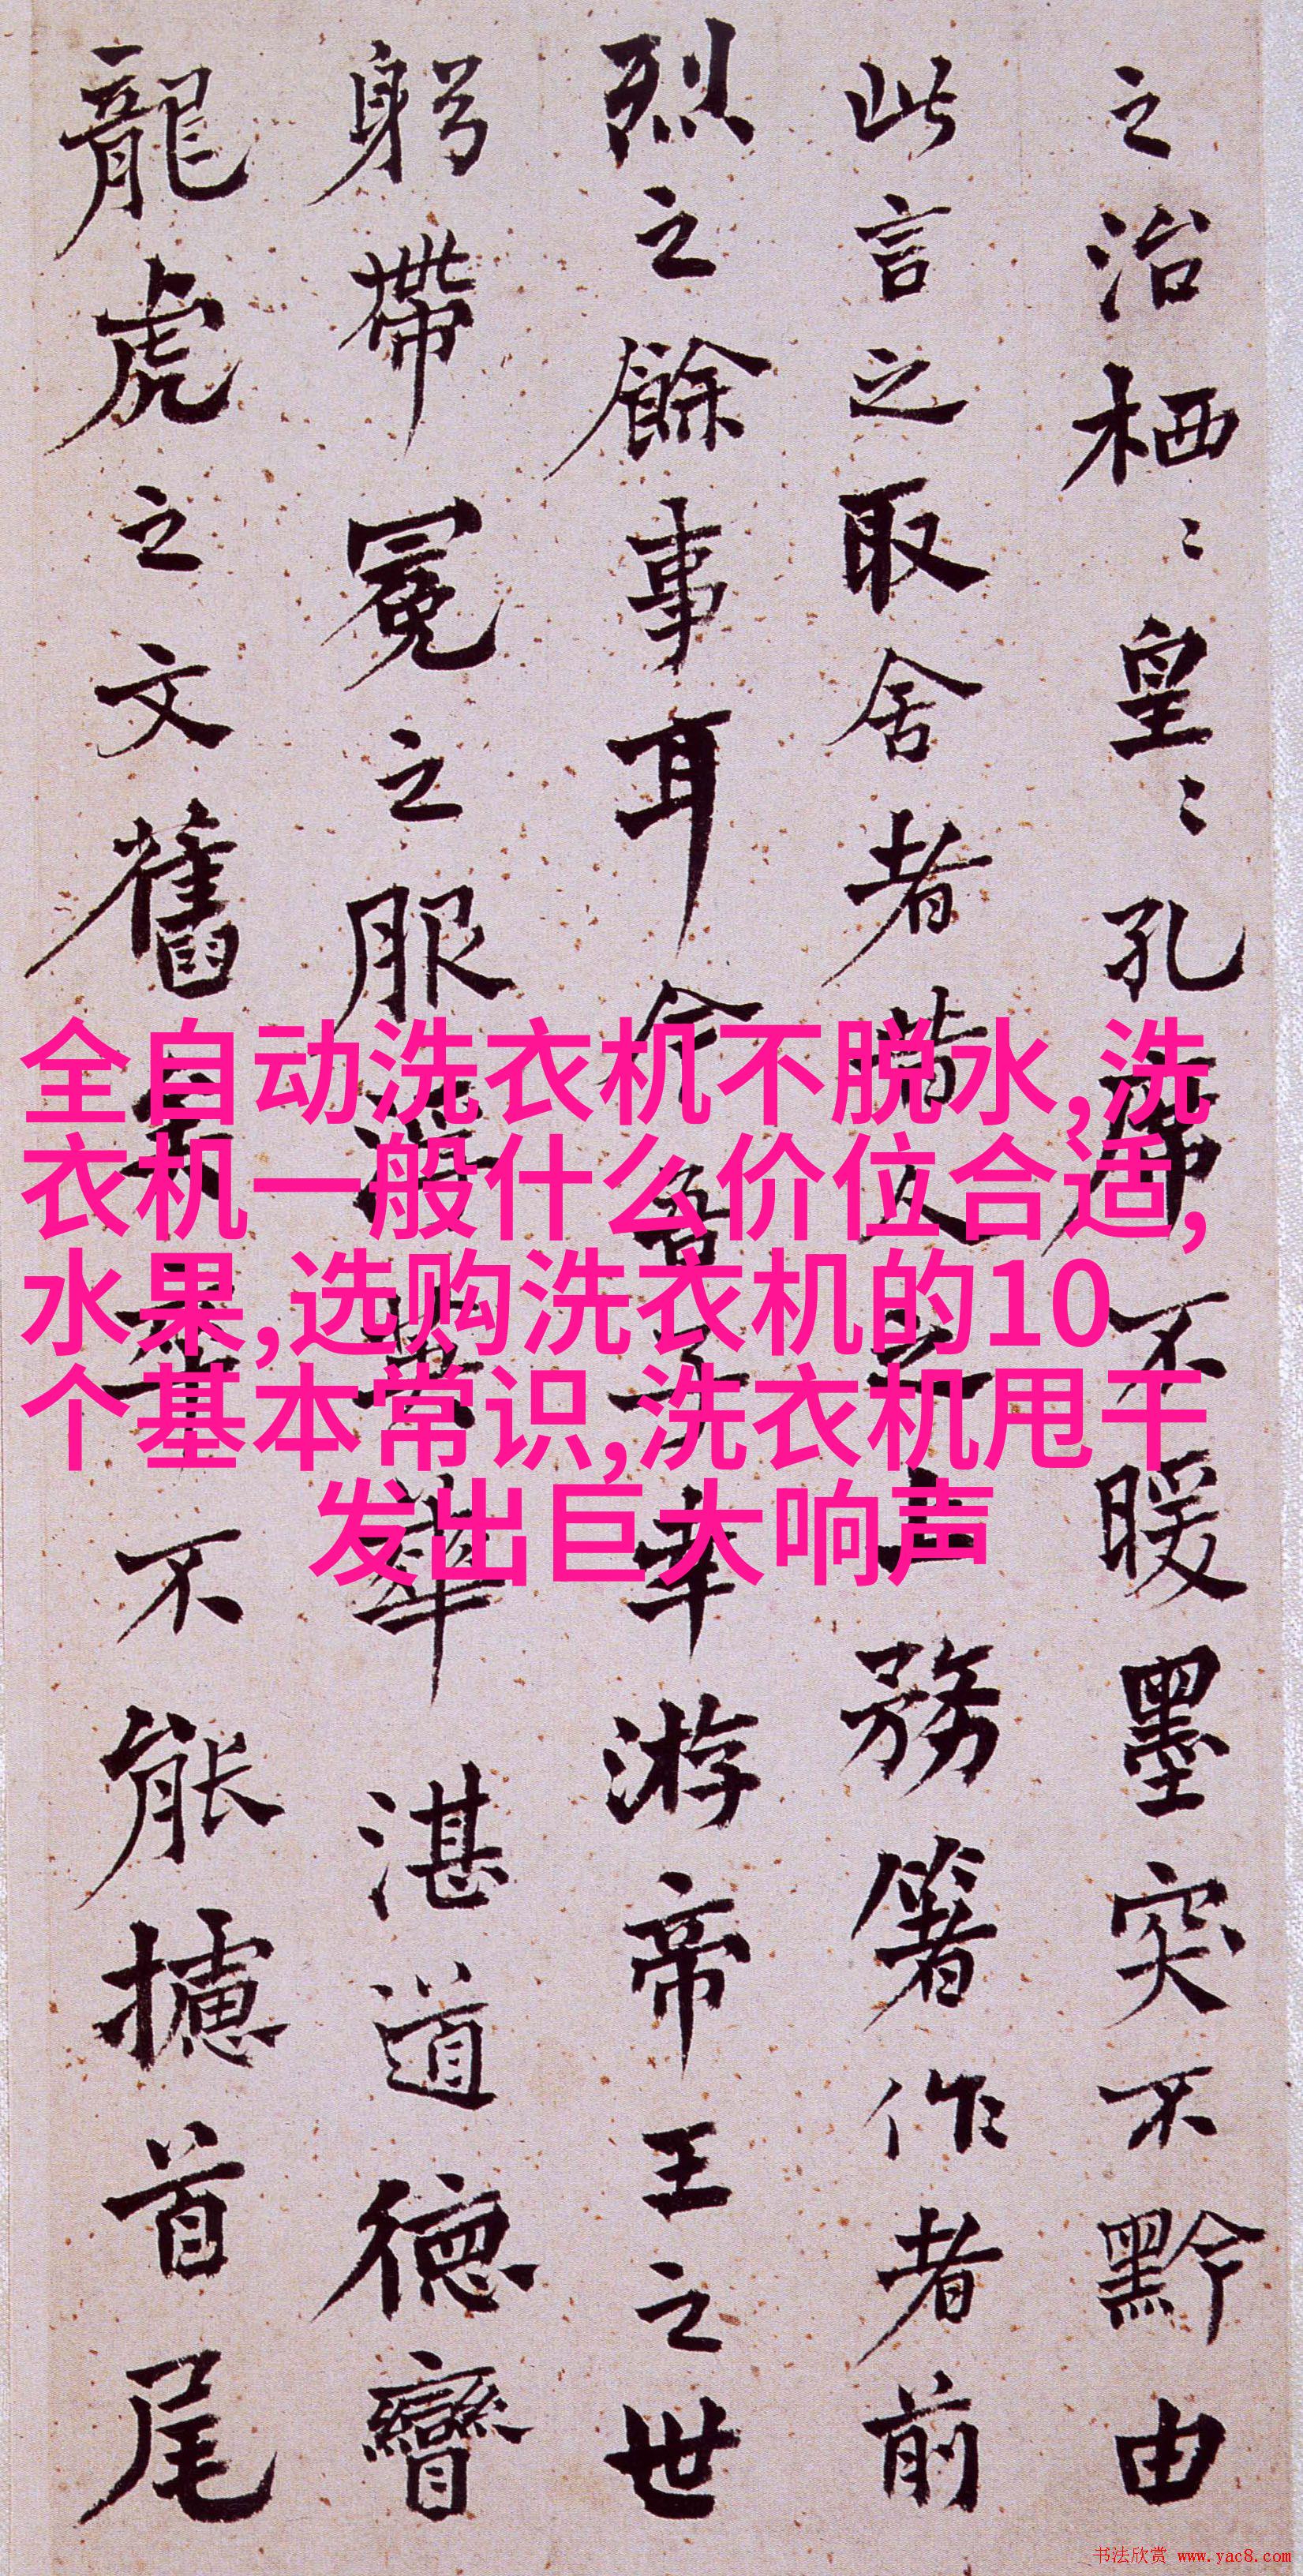 之治栖〻皇〻孔席不暖墨突不黔由
此言之取舍者昔人之上務著作者前
烈之餘事耳今吾子幸游帝王之世
躬帶冕之服浮英華湛道德矕
龍虎之文舊矣不能攄首尾
全自动洗衣机不脱水,洗
衣机一般什么价位合适,
水果,选购洗衣机的10
个基本常识,洗衣机甩干
发出巨大响声
书法欣赏 www.yac8.com